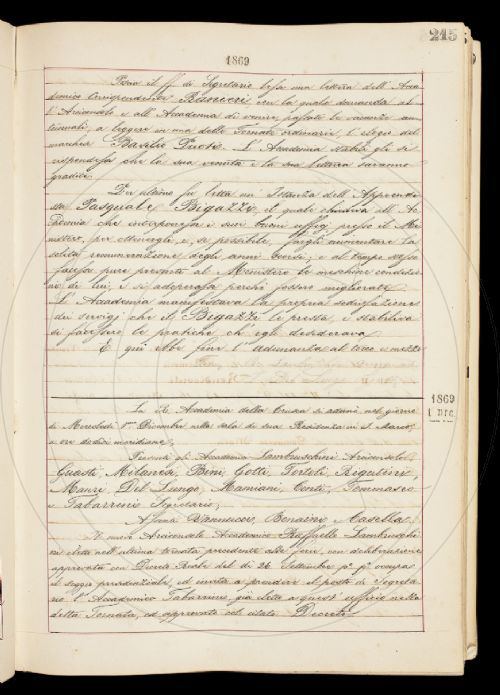 245
1869
Poscia il ff. di Segretario lesse una lettera dell'Acca-
demico Corrispondente Ranieri con la quale domanda al
l'Arciconsolo e all'Accademia di venire, passate le vacanze au-
tunnali, a leggere in una delle Tornate ordinarie, l'elogio del
marchese Basilio Puoti. L'Accademia stabilì gli si
rispondesse che la sua venuta e la sua lettura saranno
gradite.
Per ultimo fu letta un'Istanza dell'Apprendi
sta Pasquale Bigazzi, il quale chiedeva all'Ac
cademia che interponesse i suoi buoni uffizj presso il Mi
nistero, per ottenergli, e, se possibile, fargli aumentare la
solita remunerazione degli anni scorsi; e al tempo stesso
facesse pure presente al Ministero le meschine condizio
ni di lui, e si adoperasse perchè fossero migliorate.
L'Accademia manifestava la propria sodisfazione
dei servigi che il Bigazzi le presta, e stabiliva
di facessero le pratiche ch'egli desiderava.
E qui ebbe fine l'adunanza al tocco e mezzo
1869
1 Dic.
La R. Accademia della Crusca si adunò nel giorno
di Mercoledì 1mo Dicembre nella sala di sua Residenza in S. Marco,
a ore dodici meridiane.
Presenti gli Accademici Lambruschini Arciconsolo,
Guasti, Milanesi, Bini, Gotti, Tortoli, Rigutini,
Mauri, Del Lungo, Mamiani, Conti, Tommaseo
e Tabarrini Segretario;
Assenti Vannucci, Bonaini e Casella.
Il nuovo Arciconsolo Accademico Raffaello Lambruschi
ni eletto nell'ultima tornata precedente alle ferie, con deliberazione
approvata con Decreto Reale del dì 26 Settembre p.o p.o occupa
il seggio presidenziale, ed invita a prendere il posto di Segreta
rio l'Accademico Tabarrini, già eletto a quest'uffizio nella
detta Tornata, ed approvato col citato Decreto.